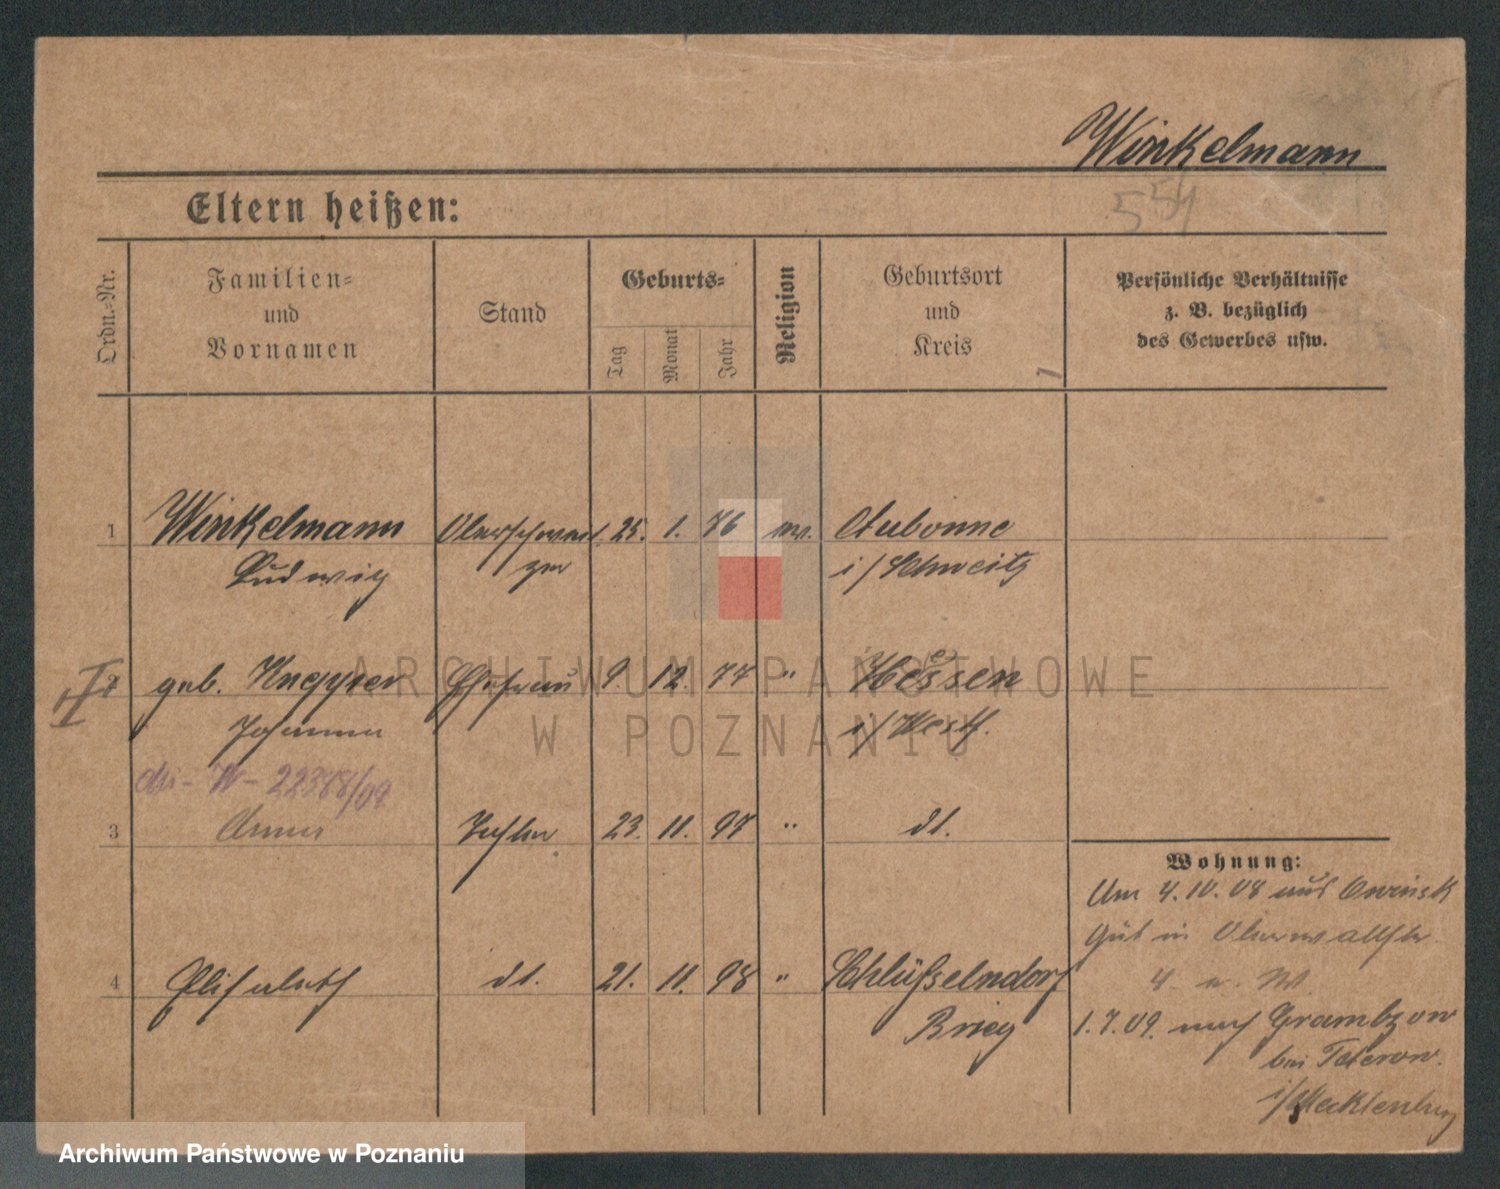 Winkelmann
554
Eltern heißen:
Ordn.-Nr.
Familien-
und
Vornamen
Stand
Geburts-
Tag
Monat
Jahr
Religion
Geburtsort
und
Kreis
Persönliche Verhältnisse
z. B. bezüglich
des Gewerbes usw.
1 Winkelmann Oberschwei 25. 1. 76 ev. Aubonne
Ludwig zer i/Schweitz
2 geb. Knepper Ehefrau 9. 12. 77 " Hessen
Johanna i/Westf.
22388/09
3 Anna Tochter 23. 11. 97 " dt.
Wohnung:
Am 4.10.08 aus
Gut in
4 Elisabeth dt. 21. 11. 98 " Schlüßelndorf
Brieg
1.7.09. nach Grambzow
bei Teterow.
i/Mecklenburg
ARCHIWUM PAŃSTWOWE
W POZNANIU
Archiwum Państwowe w Poznaniu